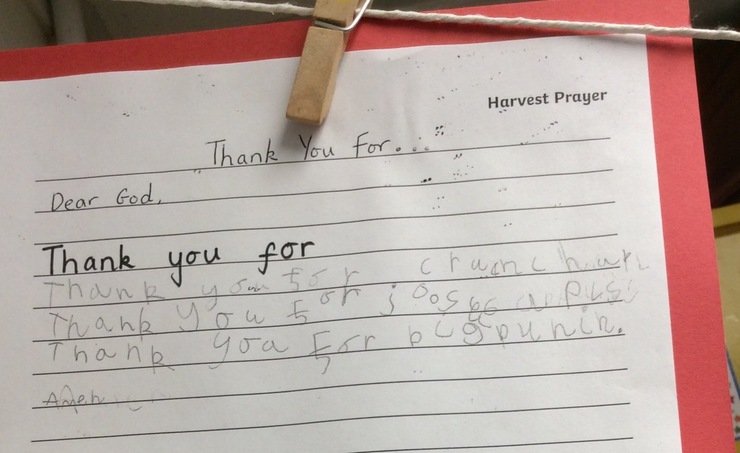 Harvest Prayer
Thank You For...
Dear God,
Thank you for
Thank you for
Thank you for joosee
Thank you for big
Amen